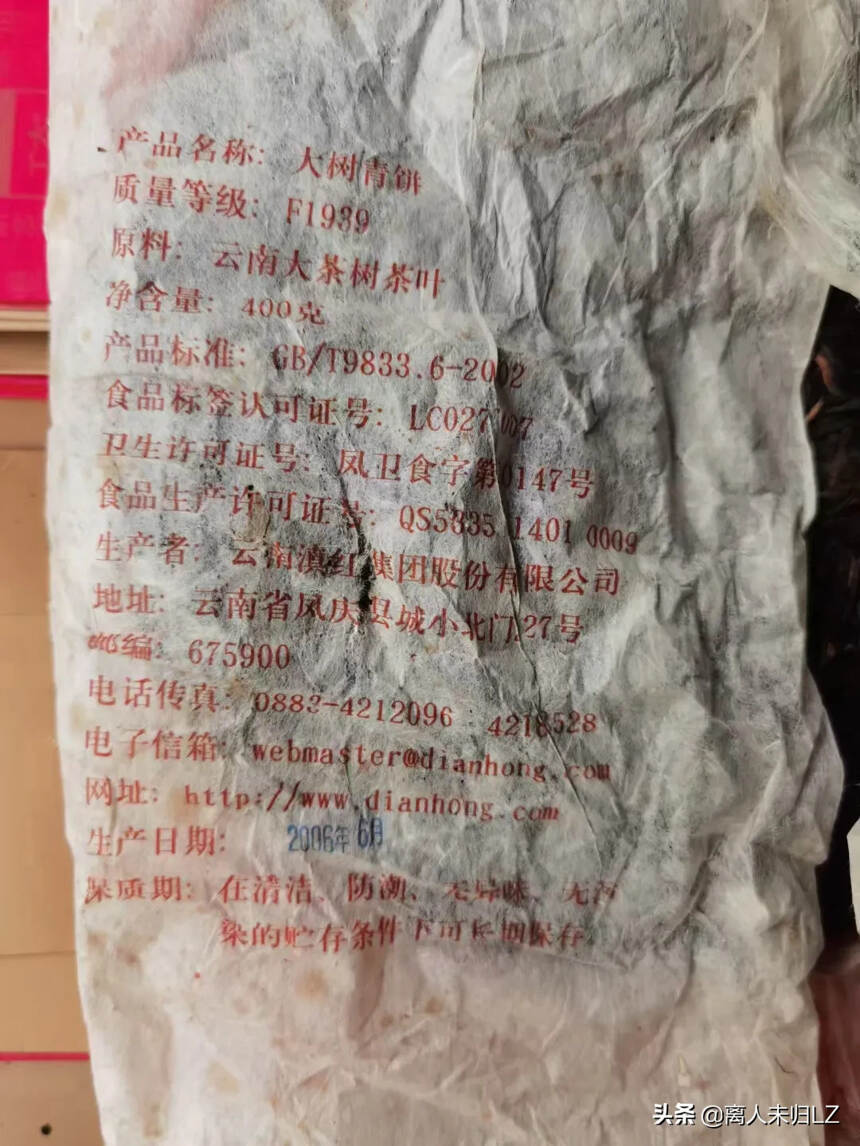 产品名称: 大树青饼
质量等级: F1939
原料: 云南大茶树茶叶
净含量: 400克
产品标准: GB/T9833.6-2002
食品标签认可证号: LC027007
卫生许可证号: 凤卫食字第0147号
食品生产许可证号: QS5335 1401 0009
生产者: 云南滇红集团股份有限公司
地址: 云南省凤庆县城小北门27号
邮编: 675900
电话传真: 0883-4212096 4218528
电子信箱: webmaster@dianhong.com
网址: http://www.dianhong.com
生产日期: 2006年6月
保质期: 在清洁、防潮、无异味、无污
染的贮存条件下可长期保存
头条 @离人未归LZ